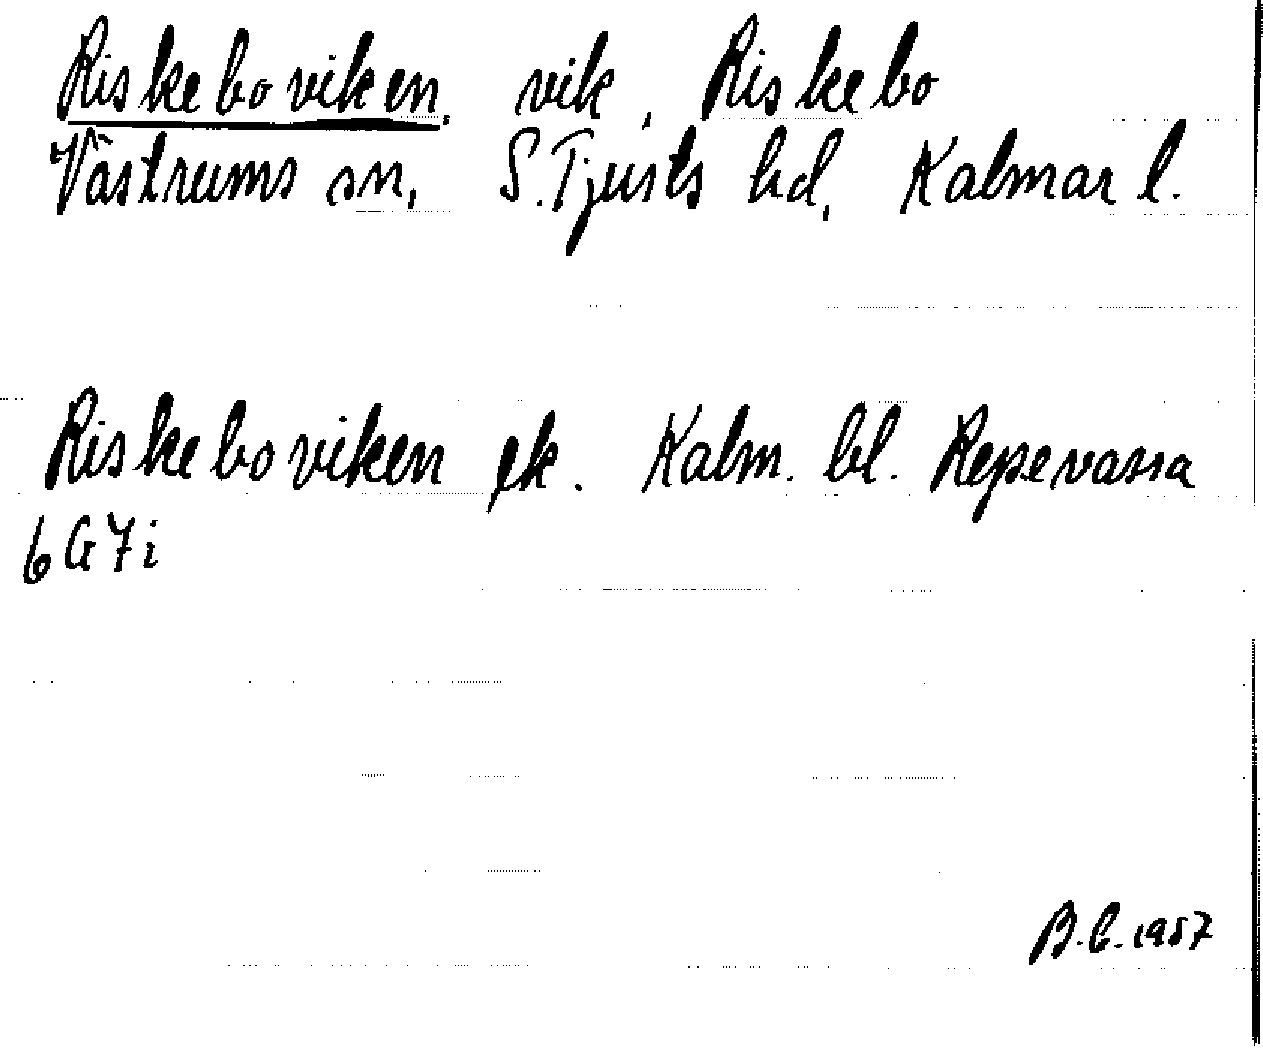 Riskeboviken, vik, Riskebo
Västrums sn, S. Tjusts hd, Kalmar l.
Riskeboviken ek. Kalm. bl. Repevassa
6 G 7 i
B.C. 1957